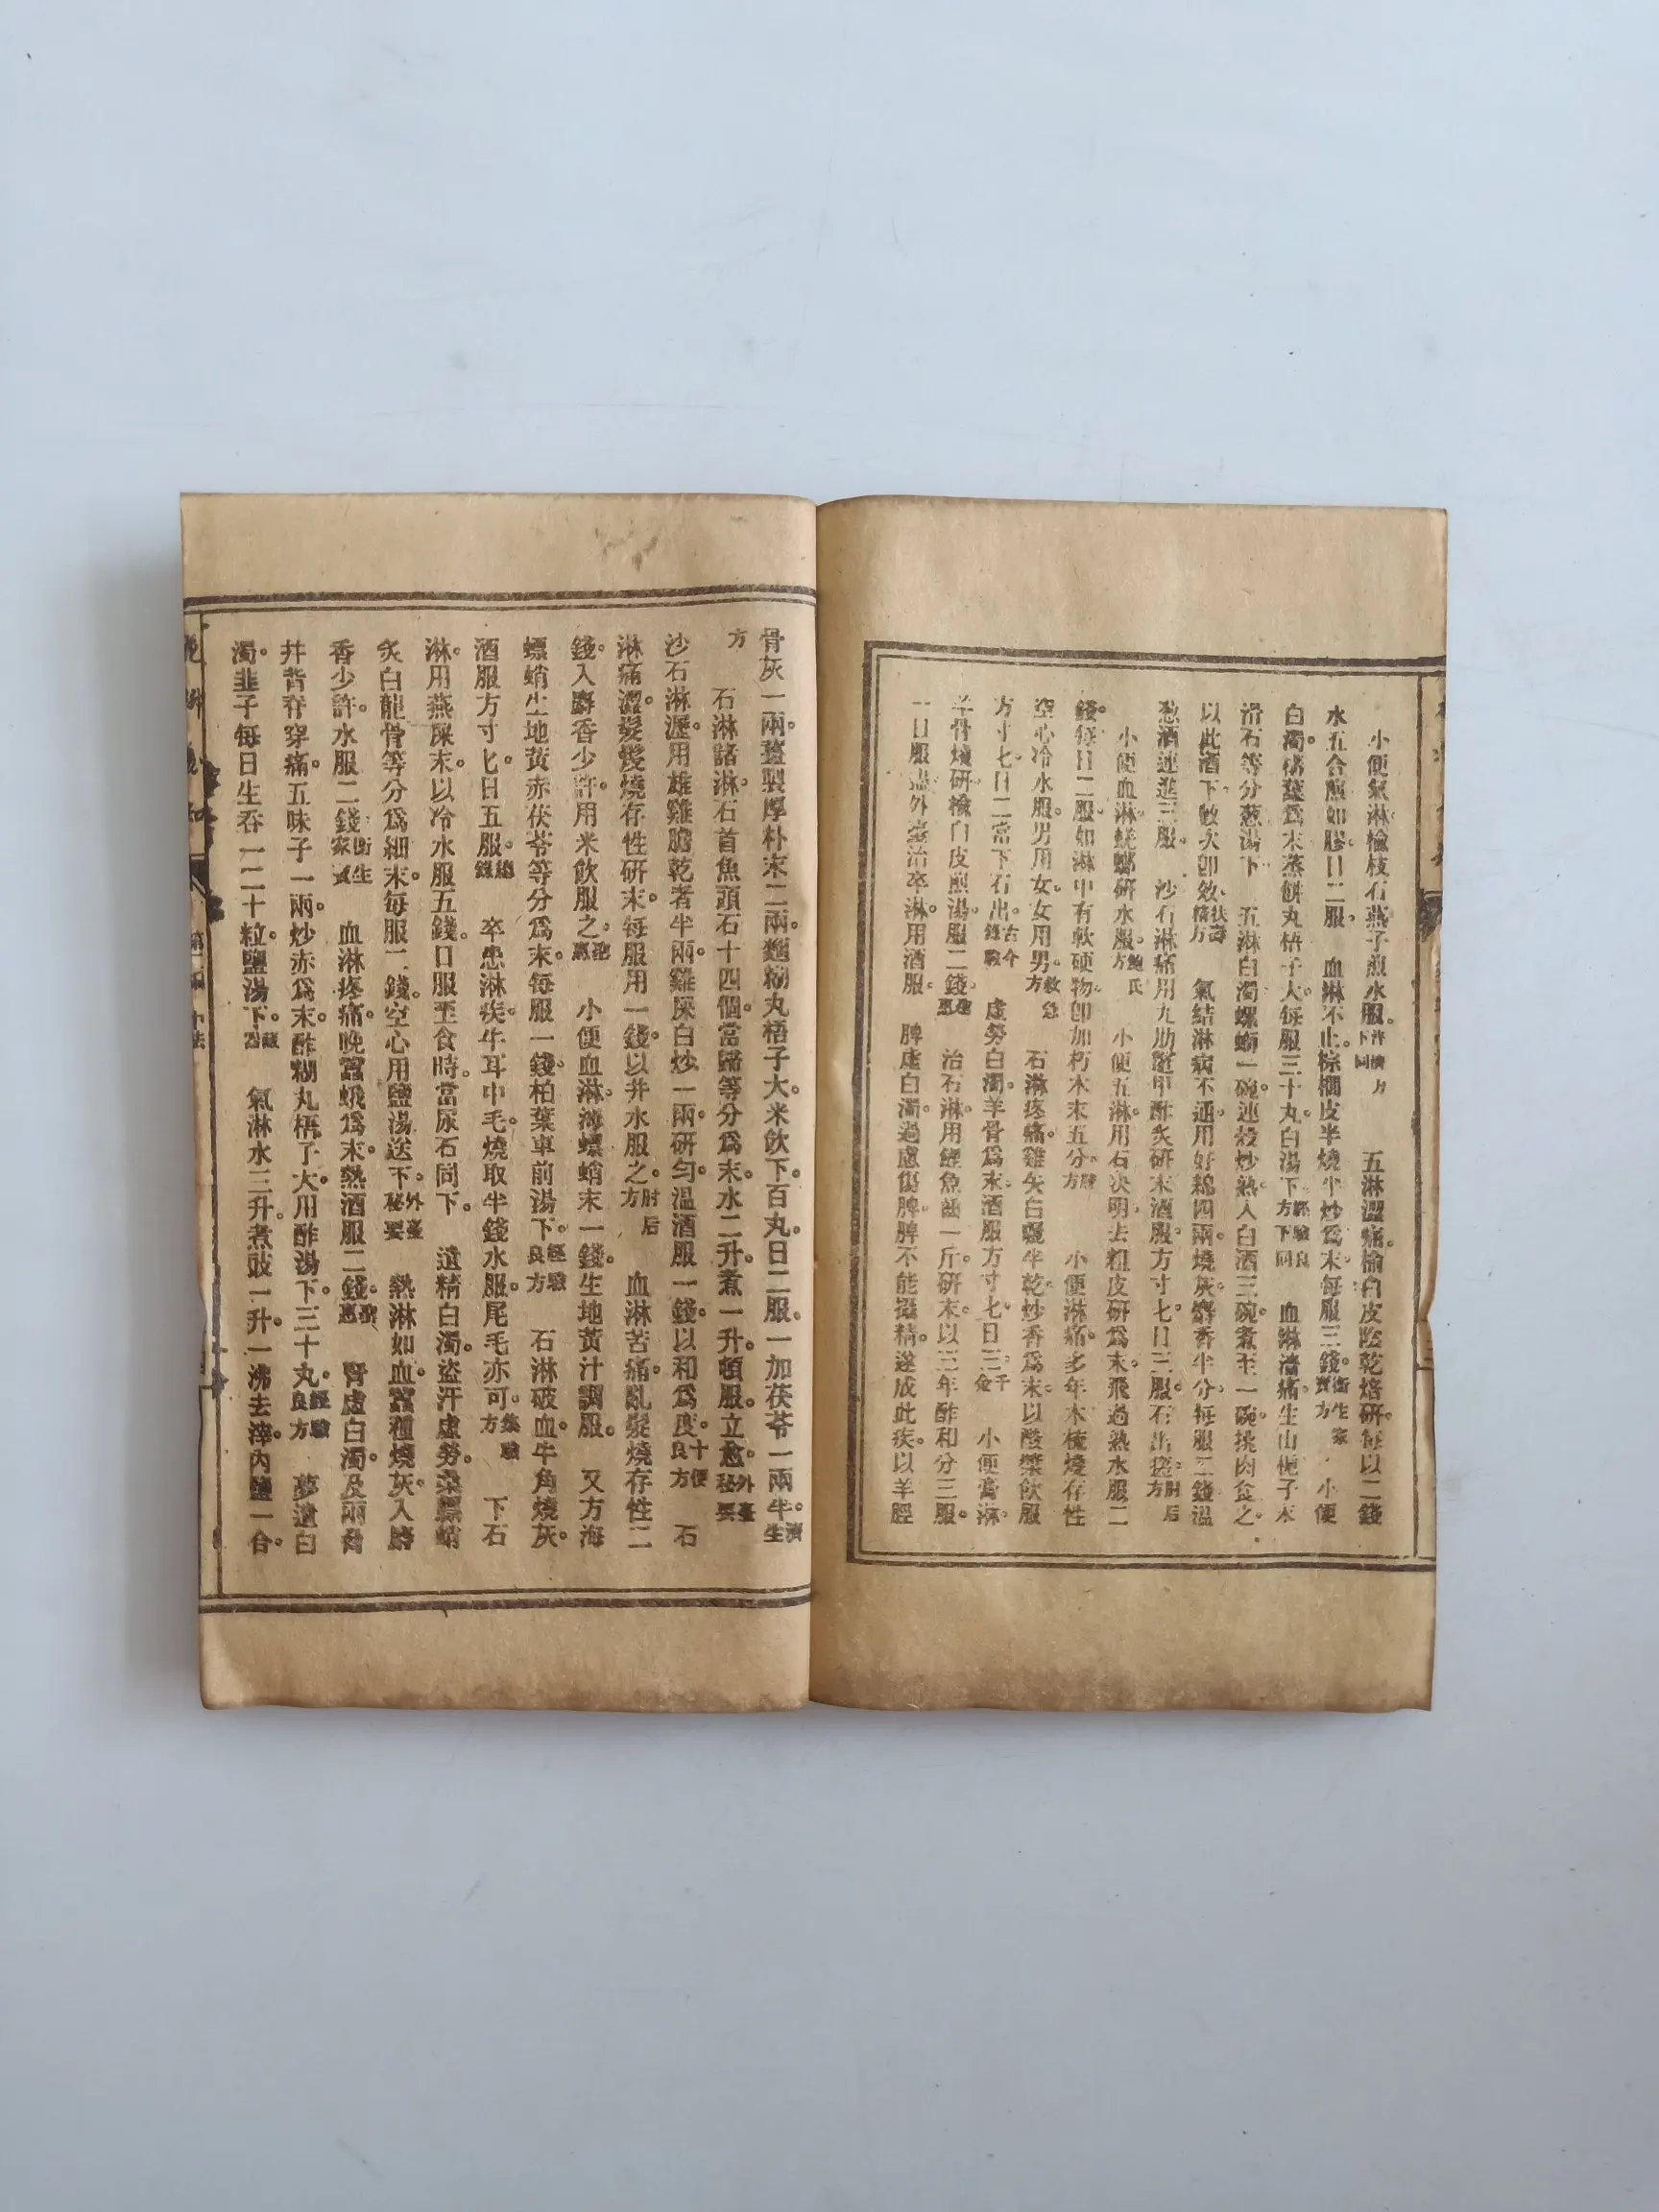 小便氣淋榆枝石燕子煎水服。下同 五淋澀痛。榆白皮陰乾焙研。每以二錢
水五合煎如膠。日二服。 血淋不止。棕櫚皮半燒半炒爲末。每服三錢。衛生家寶方 小便
白濁。蒸餅丸梧子大。每服三十丸。白湯下經驗良方下同 血淋濇痛。生山梔子末
滑石等分。蔥湯下 五淋白濁。螺螄一碗。連殼炒熱。入白酒三碗。煮至一碗。挑肉食之。
以此酒下。數次卽效。扶壽精方 氣結淋病不通。用好綿四兩。燒灰。麝香半分。每服二錢。溫
葱酒連進三服。 沙石淋痛。用九肋鱉甲。醋炙研末。酒服方寸匕。日三服。石出瘥。肘后方
小便血淋。蜣螂研水服。鮑氏方 小便五淋。用石決明。去粗皮。研爲末。飛過。熟水服二
錢。每日二服。如淋中有軟硬物。卽加朽木末五分。 小便淋痛。多年木梳燒存性
空心冷水服。男用女。女用男。救急方 石淋疼痛。雞矢白曬半乾。炒香爲末。以酸漿飲服
方寸匕。日二。當下石出。古今錄驗 虛勞白濁。羊骨爲末。酒服方寸匕。日三。千金 小便膏淋。
羊骨燒研。榆白皮煎湯。服二錢。聖惠 治石淋。用鯉魚齒一斤。研末。以三年醋和。分三服。
一日服盡。外臺治卒淋。用酒服。 脾虛白濁。過慮傷脾。脾不能攝精。遂成此疾。以羊脛
骨灰一兩。薑製厚朴末二兩。麵糊丸梧子大。米飲下百丸。日二服。一加茯苓一兩半。濟生
方 石淋諸淋。石首魚頭石十四個。當歸等分爲末。水二升。煮一升。頓服。立愈。外臺秘要
沙石淋瀝。用雄雞膽乾者半兩。雞屎白炒一兩。研勻。溫酒服一錢。以和爲度。十便良方 石
淋痛澀。髮燒存性研末。每服用一錢。以井水服之。肘后方 血淋苦痛。亂髮燒存性二
錢。入麝香少許。用米飲服之。聖惠 小便血淋。海螵蛸末一錢。生地黃汁調服。 又方。海
螵蛸生地黃赤茯苓等分爲末。每服一錢。柏葉車前湯下。經驗良方 石淋破血。牛角燒灰。
酒服方寸匕。日五服。總錄 卒患淋疾。牛耳中毛燒取半錢。水服。尾毛亦可。集驗方 下石
淋。用燕屎末。以冷水服五錢。日服。至食時。當尿石同下。 遺精白濁。盜汗虛勞。桑螵蛸
炙白龍骨等分。爲細末。每服二錢。空心用鹽湯送下。外臺秘要 熱淋如血。蠶種燒灰。入麝
香少許。水服二錢。衛生家寶 血淋疼痛。晚蠶蛾爲末。熱酒服二錢。聖惠 腎虛白濁。及兩脅
幷背脊穿痛。五味子一兩。炒赤爲末。醋糊丸梧子大。用醋湯下三十丸。經驗良方 夢遺白
濁。韭子每日生吞一二十粒。鹽湯下。 氣淋。水三升。煮豉一升。一沸。去滓。內鹽一合。